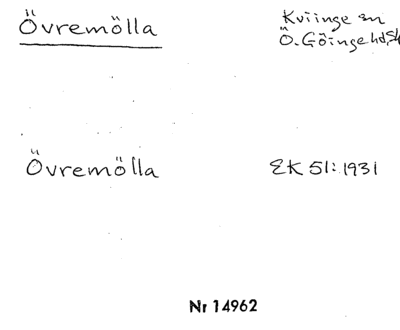 Övremölla
Kviinge sn
Ö. Göinge hd, Sk
Övremölla
EK 51: 1931
Nr 14962